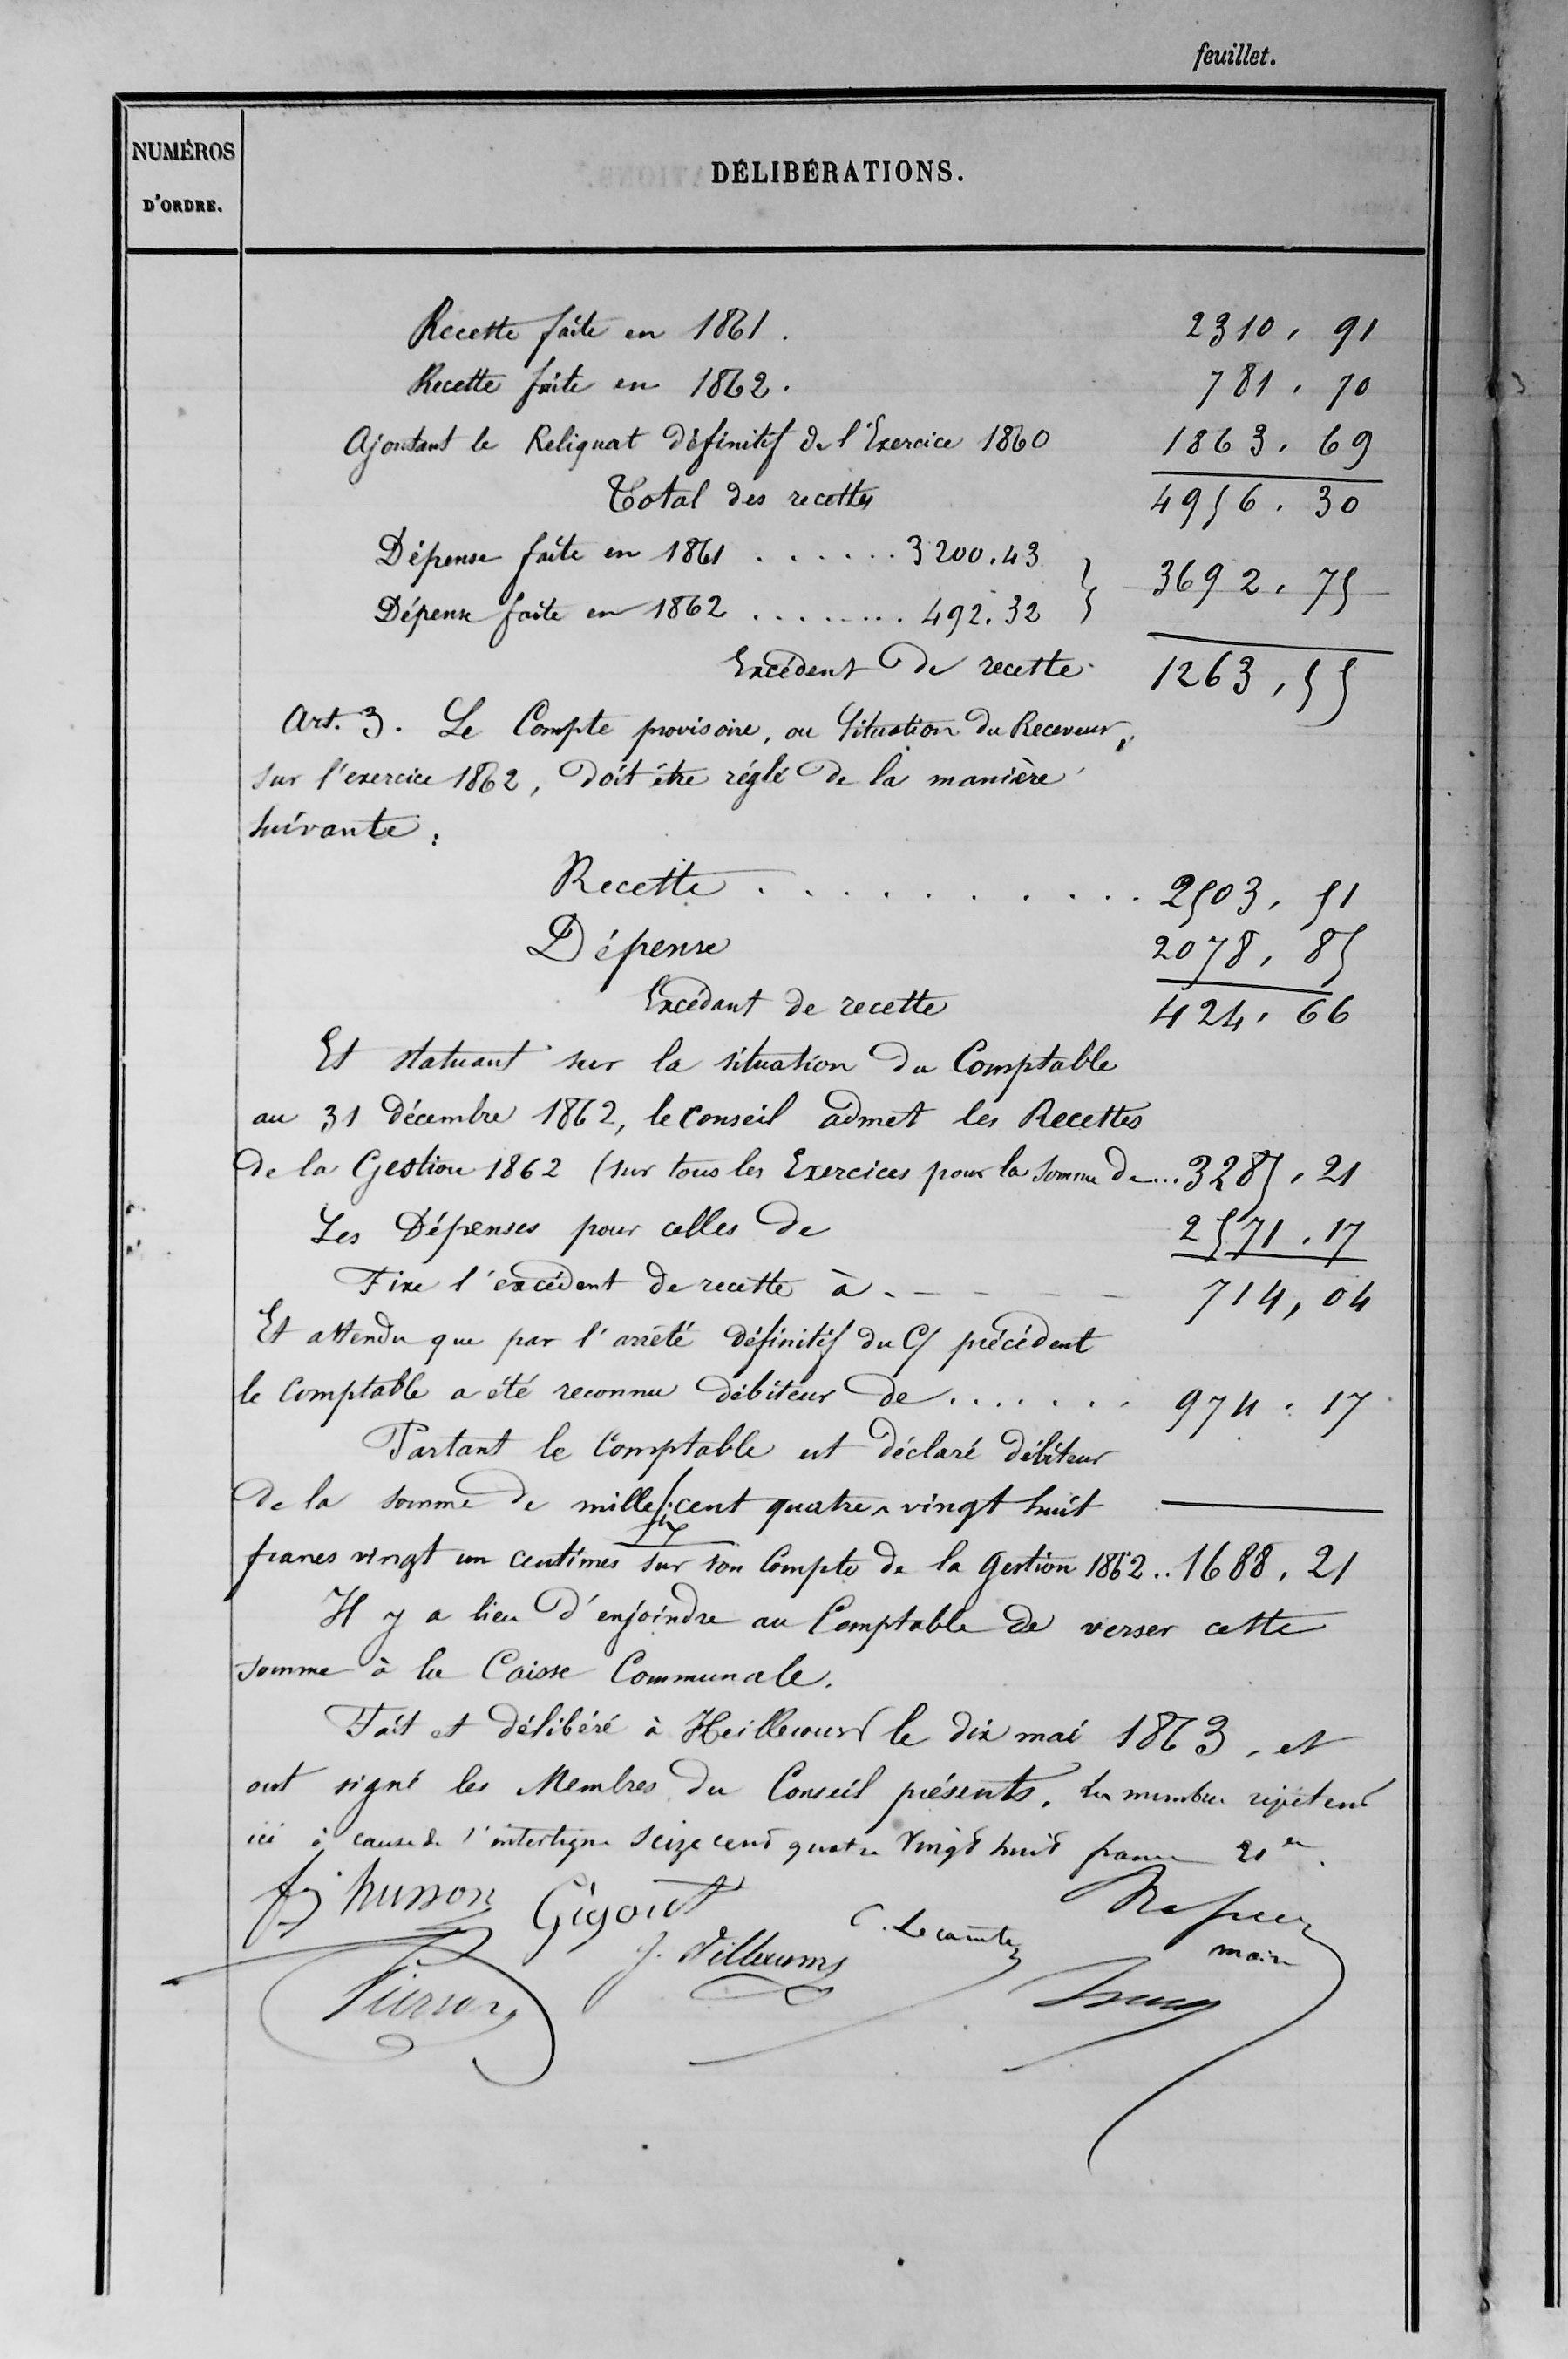 feuillet.
NUMÉROS
D'ORDRE.
DÉLIBÉRATIONS.
Recette faite en 1861. 2310, 91
Recette faite en 1862. 781, 70
Ajoutant le Reliquat définitif de l'Exercice 1860 1863, 69
Total des recettes 4956, 30
Dépense faite en 1861 ...... 3200.43
Dépense faite en 1862 ........ 492.32 } 3692, 75
Excédent de recette 1263, 55
Art. 3. Le Compte provisoire, ou Situation du Receveur,
sur l'exercice 1862, doit être réglé de la manière
suivante:
Recette .......... 2503, 51
Dépense 2078, 85
Excédant de recette 424, 66
Et statuant sur la situation du Comptable
au 31 décembre 1862, le conseil admet les Recettes
de la Gestion 1862 (sur tous les Exercices pour la somme de... 3285, 21
Les Dépenses pour celles de 2571. 17
Fixe l'excédent de recette à. - - - - 714, 04
Et attendu que par l'arrêté définitif du C/ précédent
le Comptable a été reconnu débiteur de ....... 974. 17
Partant le Comptable est déclaré débiteur
de la somme de mille six cent quatre vingt huit
francs vingt un centimes sur son Compte de la Gestion 1862.. 1688, 21
Il y a lieu d'enjoindre au Comptable de verser cette
somme à la Caisse Communale.
Fait et délibéré à Heillecourt le dix mai 1863, et
ont signé les Membres du Conseil présents. les membres répètent
ici à cause de l'interligne Seize cent quatre Vingt huit francs 21 c.
husson Gigout
C. Lecomte
maire
J. Villeum
Pierson